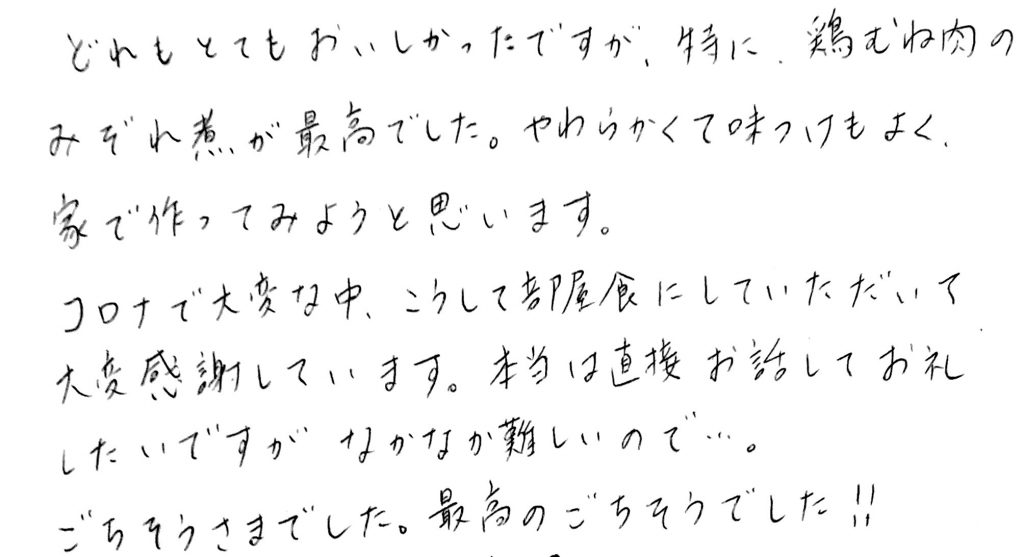 どれもとてもおいしかったですが、特に、鶏むね肉の
みぞれ煮が最高でした。やわらかくて味つけもよく、
家で作ってみようと思います。
コロナで大変な中、こうして部屋食にしていただいて
大変感謝しています。本当は直接お話してお礼
したいですがなかなか難しいので…。
ごちそうさまでした。最高のごちそうでした!!